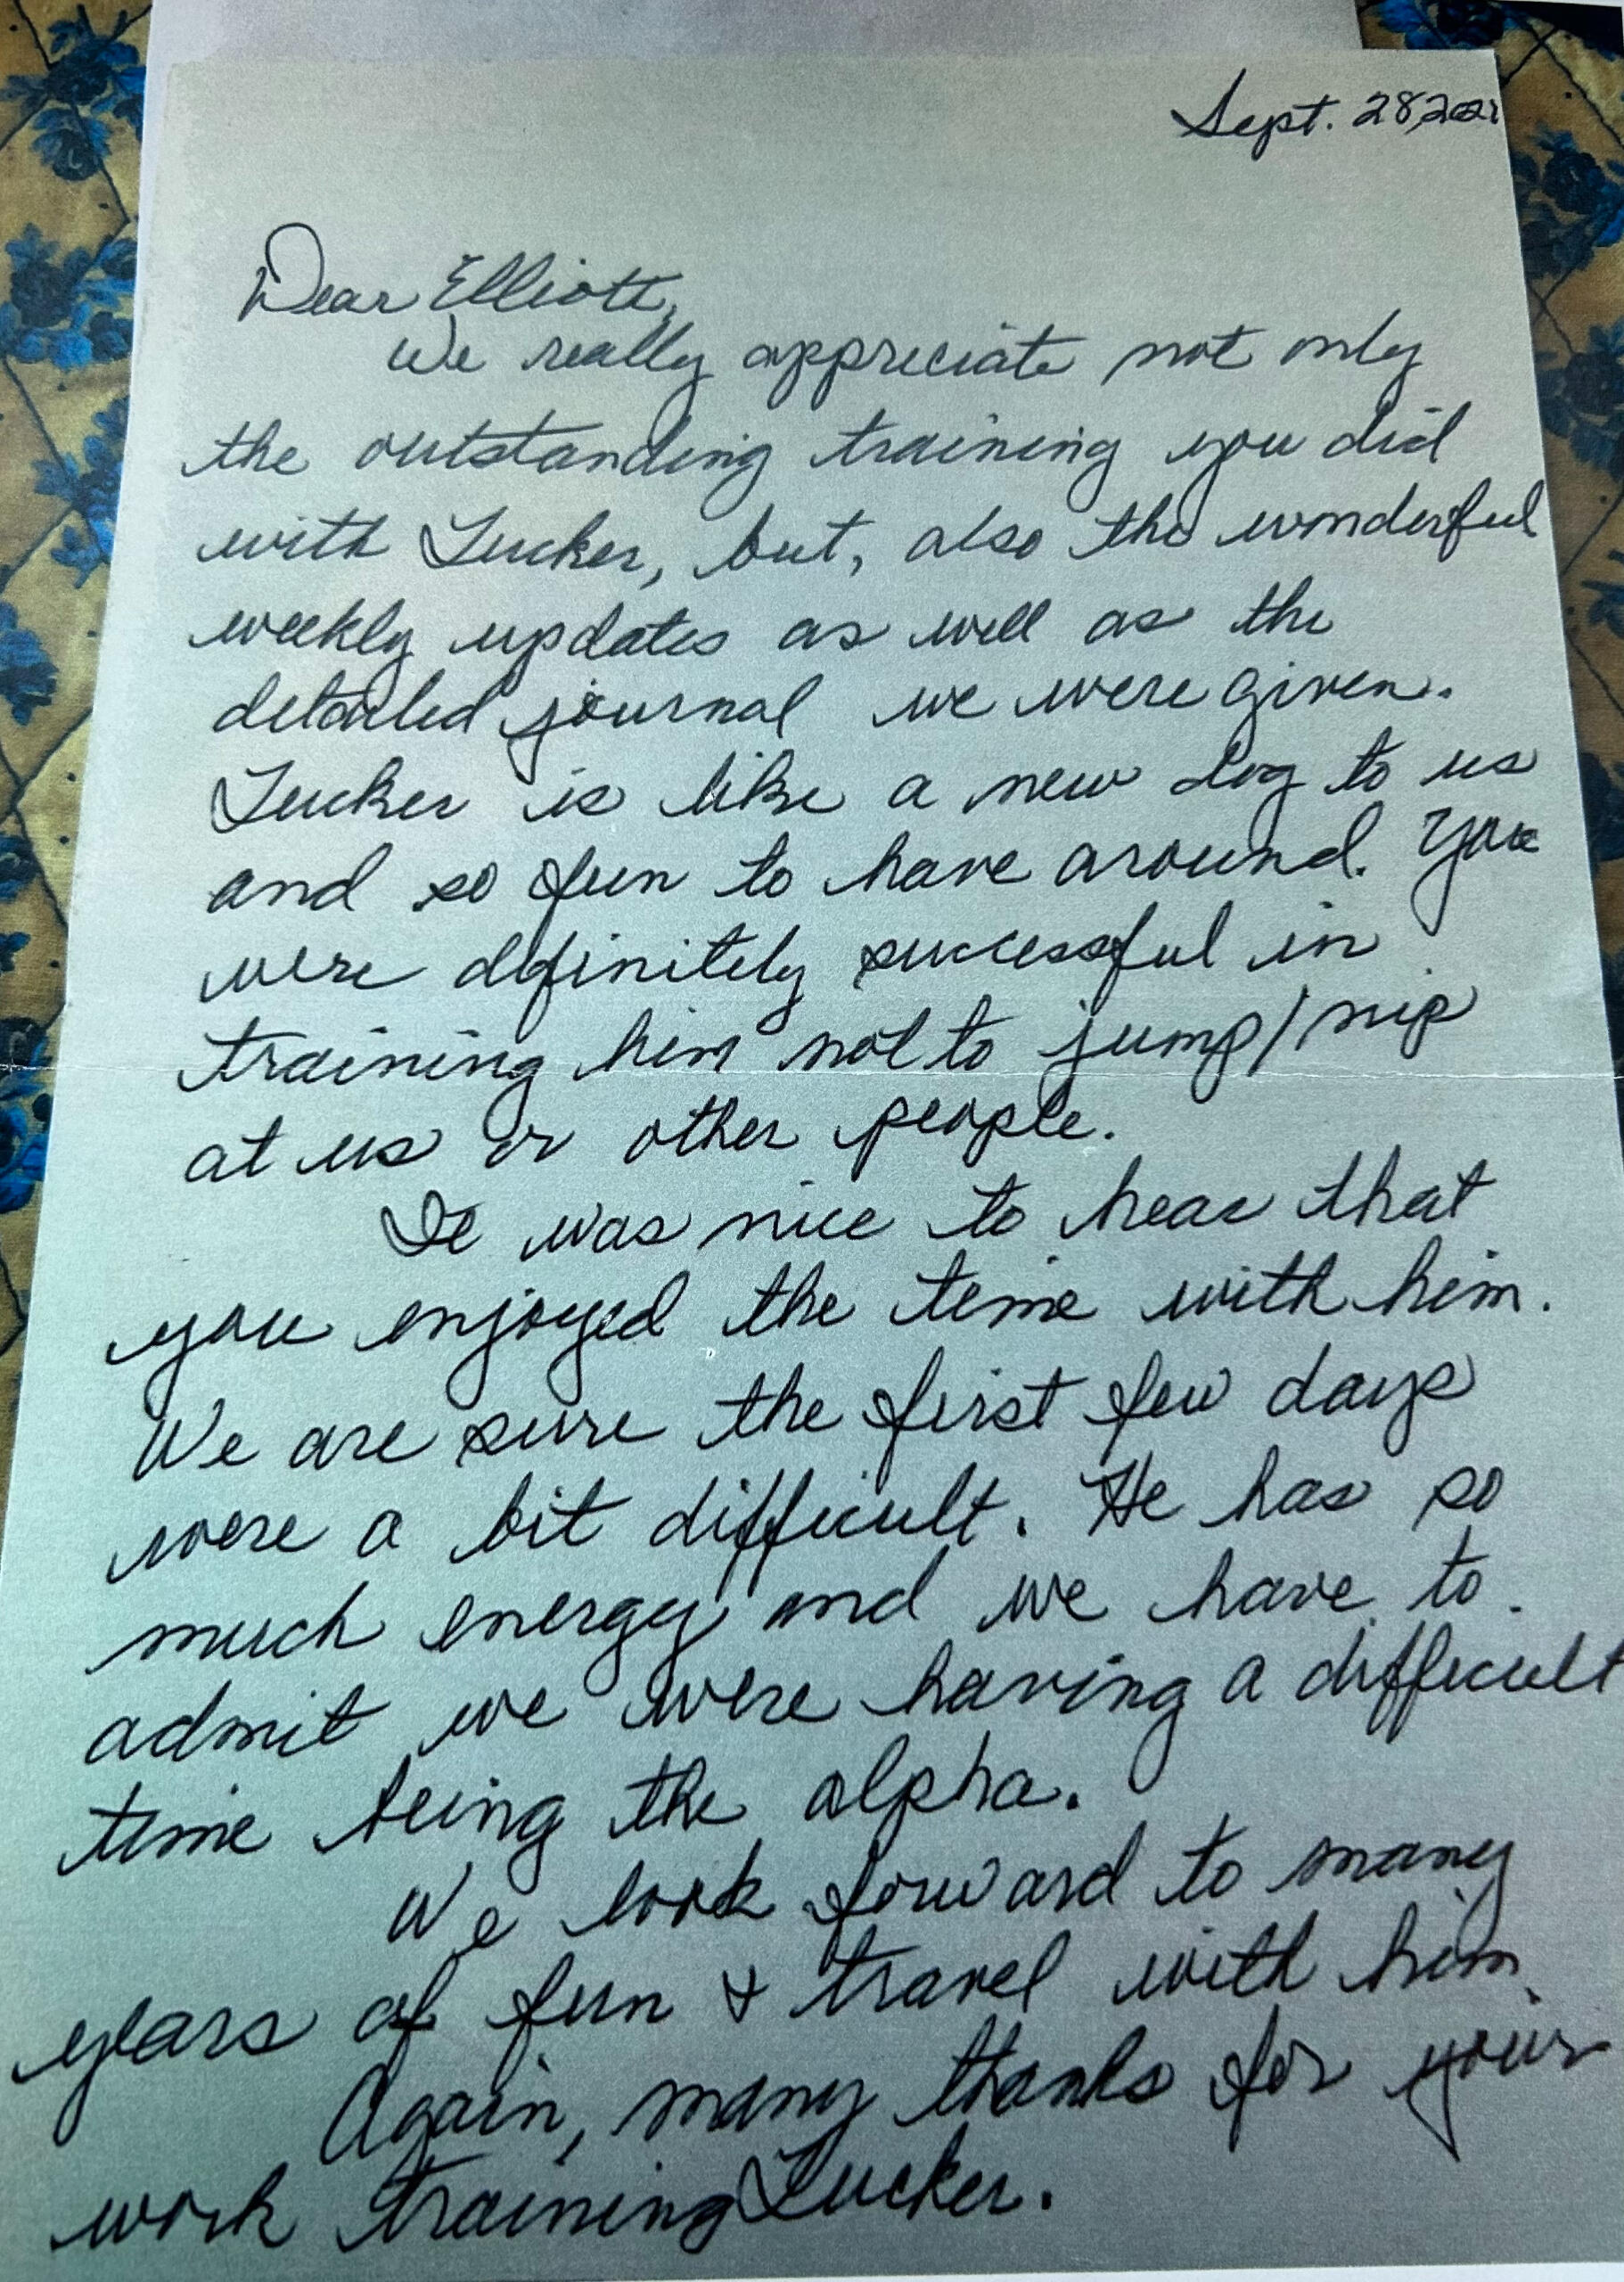 Sept. 28, 2021
Dear Elliott,
We really appreciate not only
the outstanding training you did
with Tucker, but, also the wonderful
weekly updates as well as the
detailed journal we were given.
Tucker is like a new dog to us
and so fun to have around. You
were definitely successful in
training him not to jump/nip
at us or other people.
It was nice to hear that
you enjoyed the time with him.
We are sure the first few days
were a bit difficult. He has so
much energy and we have to
admit we were having a difficult
time being the alpha.
We look forward to many
years of fun & travel with him.
Again, many thanks for your
work training Tucker.